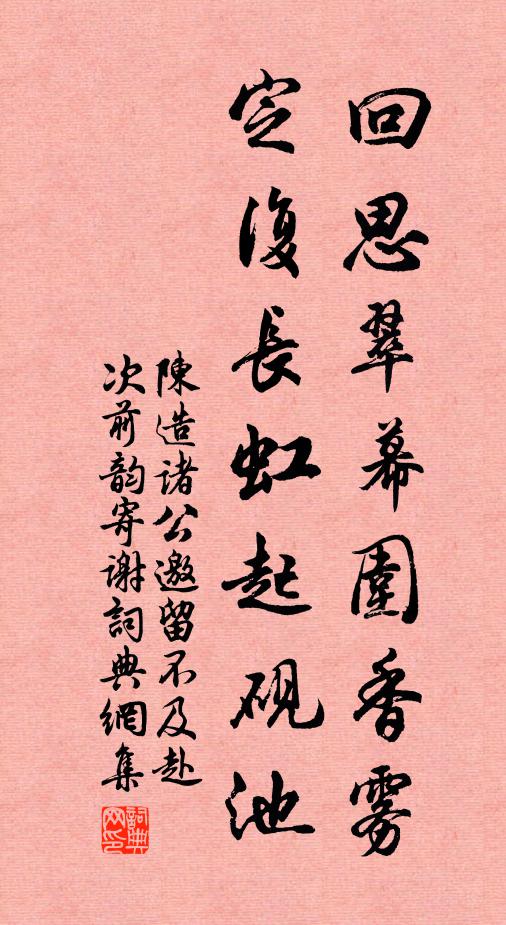 回思翠幕圍香雾
定復長虹起砚池
陳造诸公邀留不及赴
次前韵寄谢詞典網集
詞典
网印